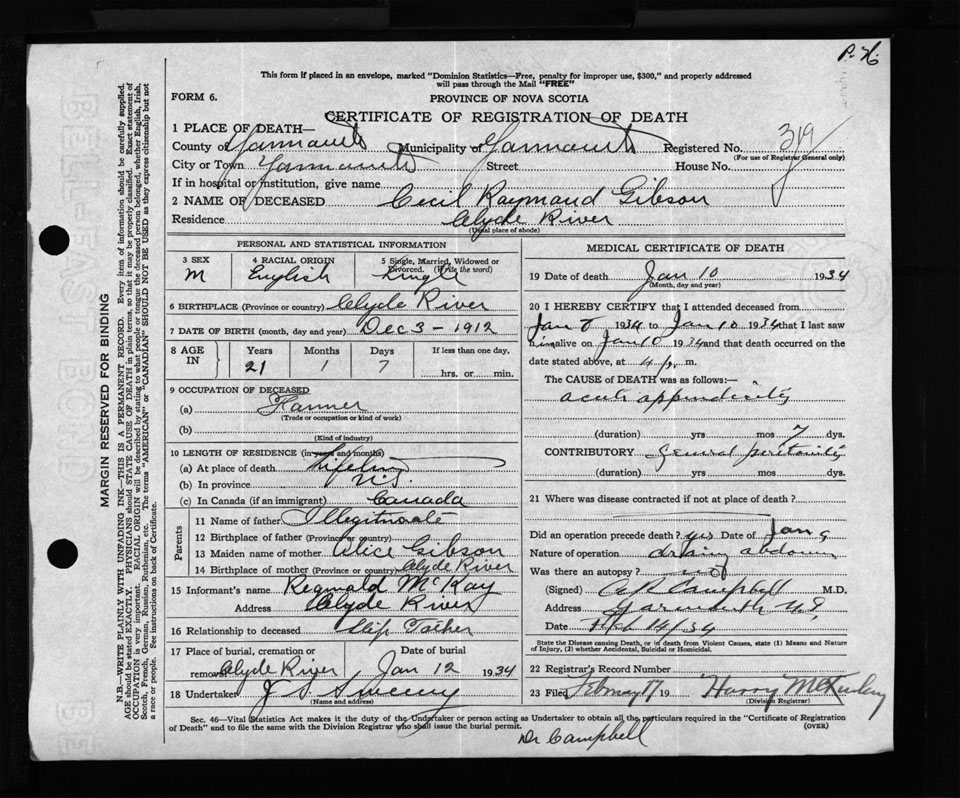 P. H.
This form if placed in an envelope, marked "Dominion Statistics—Free, penalty for improper use, $300," and properly addressed
will pass through the Mail "FREE"
FORM 6.
PROVINCE OF NOVA SCOTIA
CERTIFICATE OF REGISTRATION OF DEATH
1 PLACE OF DEATH—
County of Yarmouth Municipality of Yarmouth Registered No. 319
(For use of Registrar General only)
City or Town Yarmouth Street House No.
If in hospital or institution, give name
2 NAME OF DECEASED Cecil Raymond Gibson
Residence Clyde River
(Usual place of abode)
MARGIN RESERVED FOR BINDING
N.B.—WRITE PLAINLY WITH UNFADING INK—THIS IS A PERMANENT RECORD. Every item of information should be carefully supplied.
AGE should be stated EXACTLY. PHYSICIANS should STATE CAUSE OF DEATH in plain terms, so that it may be properly classified. Exact statement of
OCCUPATION is very important. RACIAL ORIGIN will be described by stating to what people or tongue the deceased person belonged, whether English, Irish,
Scotch, French, German, Russian, Ruthenian, etc. The terms "AMERICAN" or "CANADIAN" SHOULD NOT BE USED as they express citizenship but not
a race or people. See instructions on back of Certificate.
PERSONAL AND STATISTICAL INFORMATION
3 SEX 4 RACIAL ORIGIN 5 Single, Married, Widowed or
Divorced. (Write the word)
M English Single
6 BIRTHPLACE (Province or country) Clyde River
7 DATE OF BIRTH (month, day and year) Dec 3 - 1912
8 AGE IN Years Months Days If less than one day,
21 1 7 hrs. or min.
9 OCCUPATION OF DECEASED
(a) Farmer
(Trade or occupation or kind of work)
(b)
(Kind of industry)
10 LENGTH OF RESIDENCE (in years and months)
(a) At place of death Lifetime
(b) In province N.S.
(c) In Canada (if an immigrant) Canada
Parents
11 Name of father Illegitimate
12 Birthplace of father (Province or country)
13 Maiden name of mother Alice Gibson
14 Birthplace of mother (Province or country) Clyde River
15 Informant's name Reginald McKay
Address Clyde River
16 Relationship to deceased Step Father
17 Place of burial, cremation or Date of burial
removal Clyde River Jan 12 1934
18 Undertaker J S Sweeny
(Name and address)
MEDICAL CERTIFICATE OF DEATH
19 Date of death Jan 10 1934
(Month, day and year)
20 I HEREBY CERTIFY that I attended deceased from
Jan 1934 to Jan 10 1934 that I last saw
him alive on Jan 10 1934 and that death occurred on the
date stated above, at 4 p. m.
The CAUSE of DEATH was as follows:—
acute appendicitis
(duration) yrs mos 7 dys.
CONTRIBUTORY general peritonitis
(duration) yrs mos dys.
21 Where was disease contracted if not at place of death?
Did an operation precede death? yes Date of Jan 9
Nature of operation drain abdomen
Was there an autopsy? no
(Signed) Campbell M.D.
Address Yarmouth N.S.
Date Feb 14/34
State the Disease causing Death, or in death from Violent Causes, state (1) Means and Nature
of Injury, (2) whether Accidental, Suicidal or Homicidal.
22 Registrar's Record Number
23 Filed February 17 19 Harry
(Division Registrar)
Sec. 46—Vital Statistics Act makes it the duty of the Undertaker or person acting as Undertaker to obtain all the particulars required in the "Certificate of Registration
of Death" and to file the same with the Division Registrar who shall issue the burial permit. (OVER)
Dr Campbell